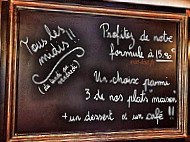 Tous les
midis !!
(du lundi au
vendredi)
Profitez de notre
formule à 15.90€
Un choix parmi
3 de nos plats "maison"
+ un dessert et un café !!!